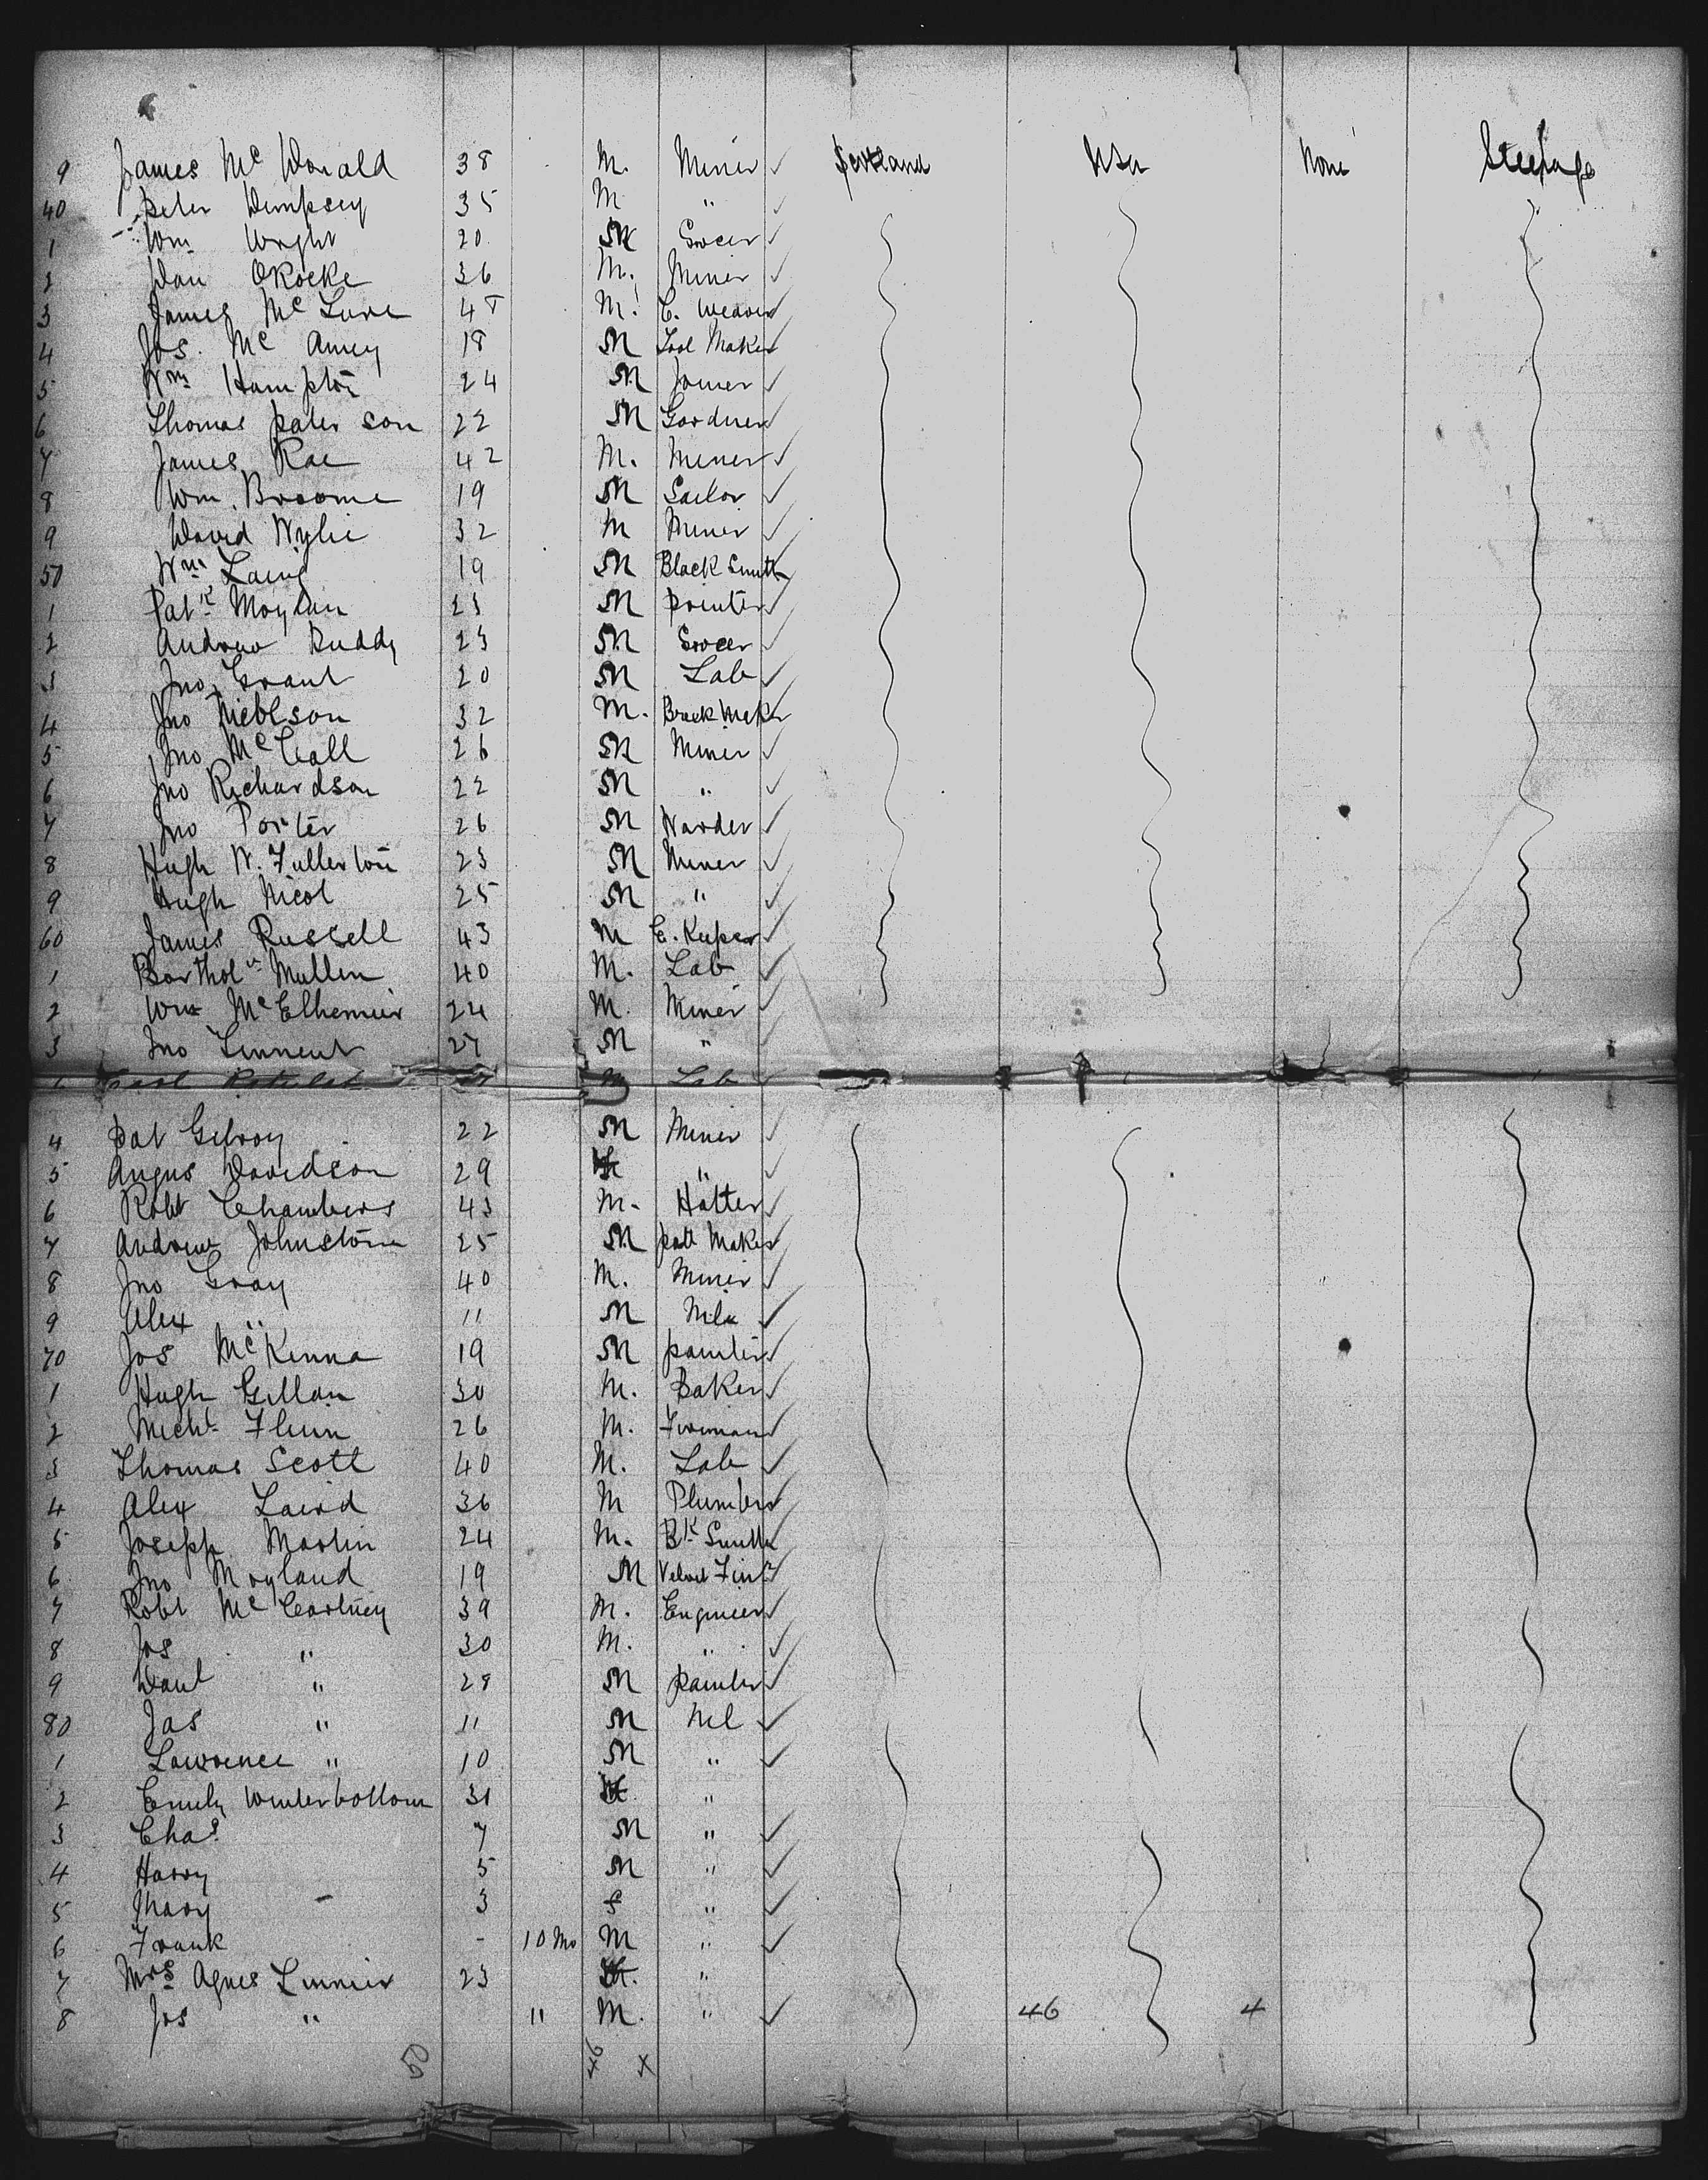 9 James Mc Donald 38 M. Miner ✓ Scotland USA None Steerage
40 Peter Dempsey 35 M " ✓
1 Wm Wright 20 M Grocer ✓
2 Dan ORoeke 36 M. Miner ✓
3 James Mc Lure 48 M. C. Weaver ✓
4 Jos. Mc Amey 18 M Tool Maker ✓
5 Wm Hampton 24 M Joiner ✓
6 Thomas Paterson 22 M Gardner ✓
7 James Rae 42 M. Miner ✓
8 Wm. Broome 19 M Sailor ✓
9 David Wylie 32 M Miner ✓
50 Wm Laing 19 M Black Smith ✓
1 Patk Moylan 23 M printer ✓
2 Andrew Buddy 23 M Grocer ✓
3 Jno Grant 20 M Lab ✓
4 Jno Nieblson 32 M. Maker
5 Jno McCall 26 M Miner ✓
6 Jno Richardson 22 M " ✓
7 Jno Porter 26 M Warder ✓
8 Hugh W. Fullerton 23 M Miner ✓
9 Hugh Nicol 25 M " ✓
60 James Russell 43 M E. Keeper ✓
1 Barthol Mullin 40 M. Lab ✓
2 Wm 24 M. Miner ✓
3 Jno Tennent 27 M " ✓
Lab
4 Pat Gilroy 22 M Miner ✓
5 Angus Davidson 29 " ✓
6 Robt Chambers 43 M. Hatter ✓
7 Andrew Johnstone 25 M patt Maker ✓
8 Jno Gray 40 M. Miner ✓
9 Alex " 11 M Nil ✓
70 Jos McKenna 19 M painter ✓
1 Hugh Gillan 30 M. Baker ✓
2 Michl Flinn 26 M. Fireman ✓
3 Thomas Scott 40 M. Lab ✓
4 Alex Laird 36 M Plumber ✓
5 Joseph Martin 24 M. Bk Smith ✓
6 Jno Moyland 19 M Velvet Finr ✓
7 Robt McCartney 39 M. Engineer ✓
8 Jos " 30 M. " ✓
9 Danl " 28 M painter ✓
80 Jas " 11 M Nil ✓
1 Lawrence " 10 M " ✓
2 Emily Winterbottom 31 "
3 Chas 7 M " ✓
4 Harry 5 M " ✓
5 Mary 3 f " ✓
6 Frank - 10 Mo M " ✓
7 Mrs Agnes 23 "
8 Jos " 11 M. " ✓ 46 4
50 46 X